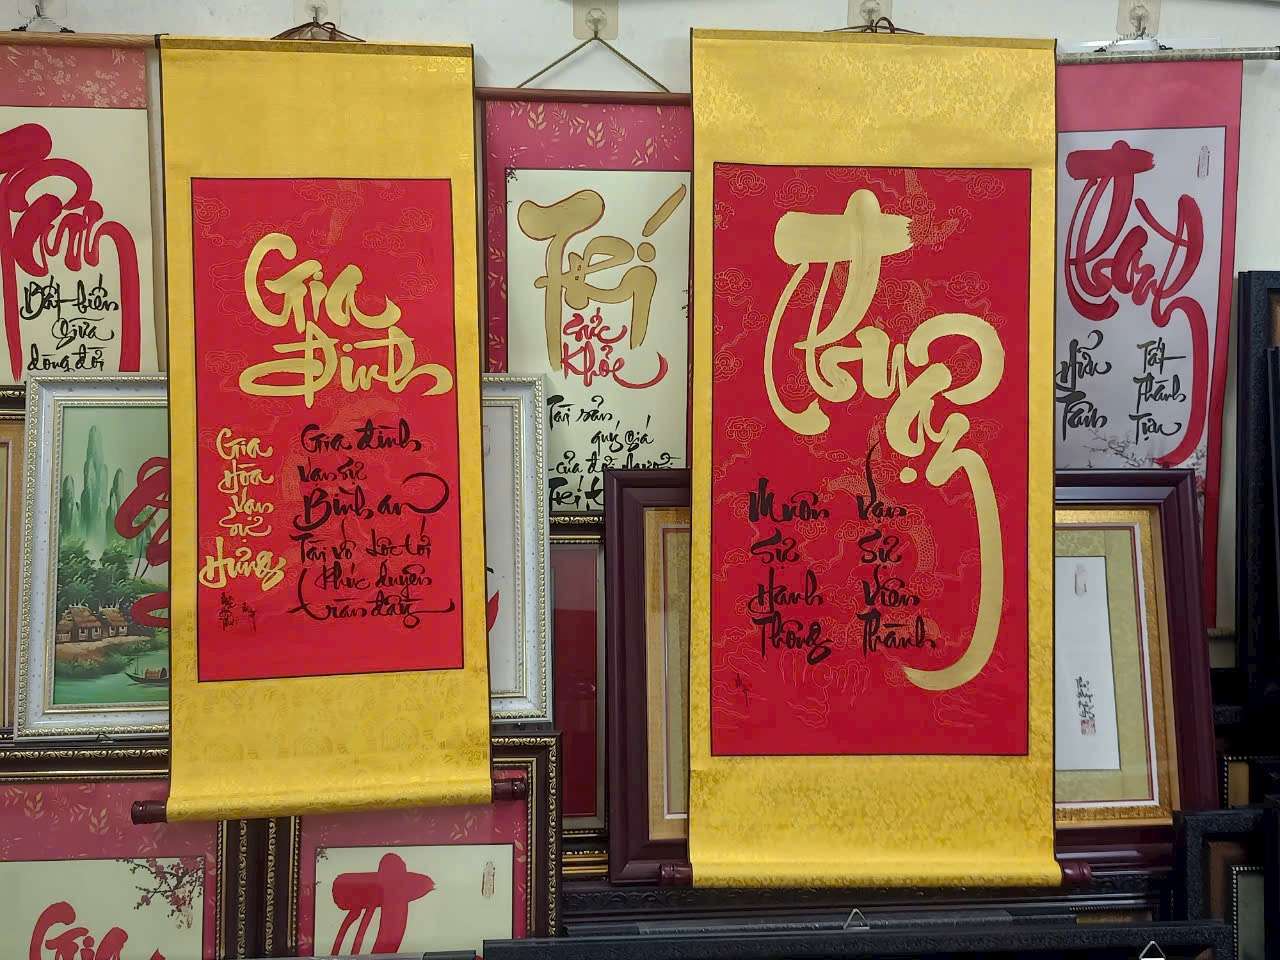 Bất biến
giữa
dòng đời
Gia
Đình
Gia
Hòa
Vạn
Sự
Hưng
Gia đình
vạn sự
Bình an
Tài vô lộc tới
Phúc duyên
tràn đầy
Trí
Sức
Khỏe
Tài sản
quý giá
của đời người
Thuận
Muôn
Sự
Hanh
Thông
Vạn
Sự
Viên
Thành
Thành
Tất
Thành
Tựu
Gia